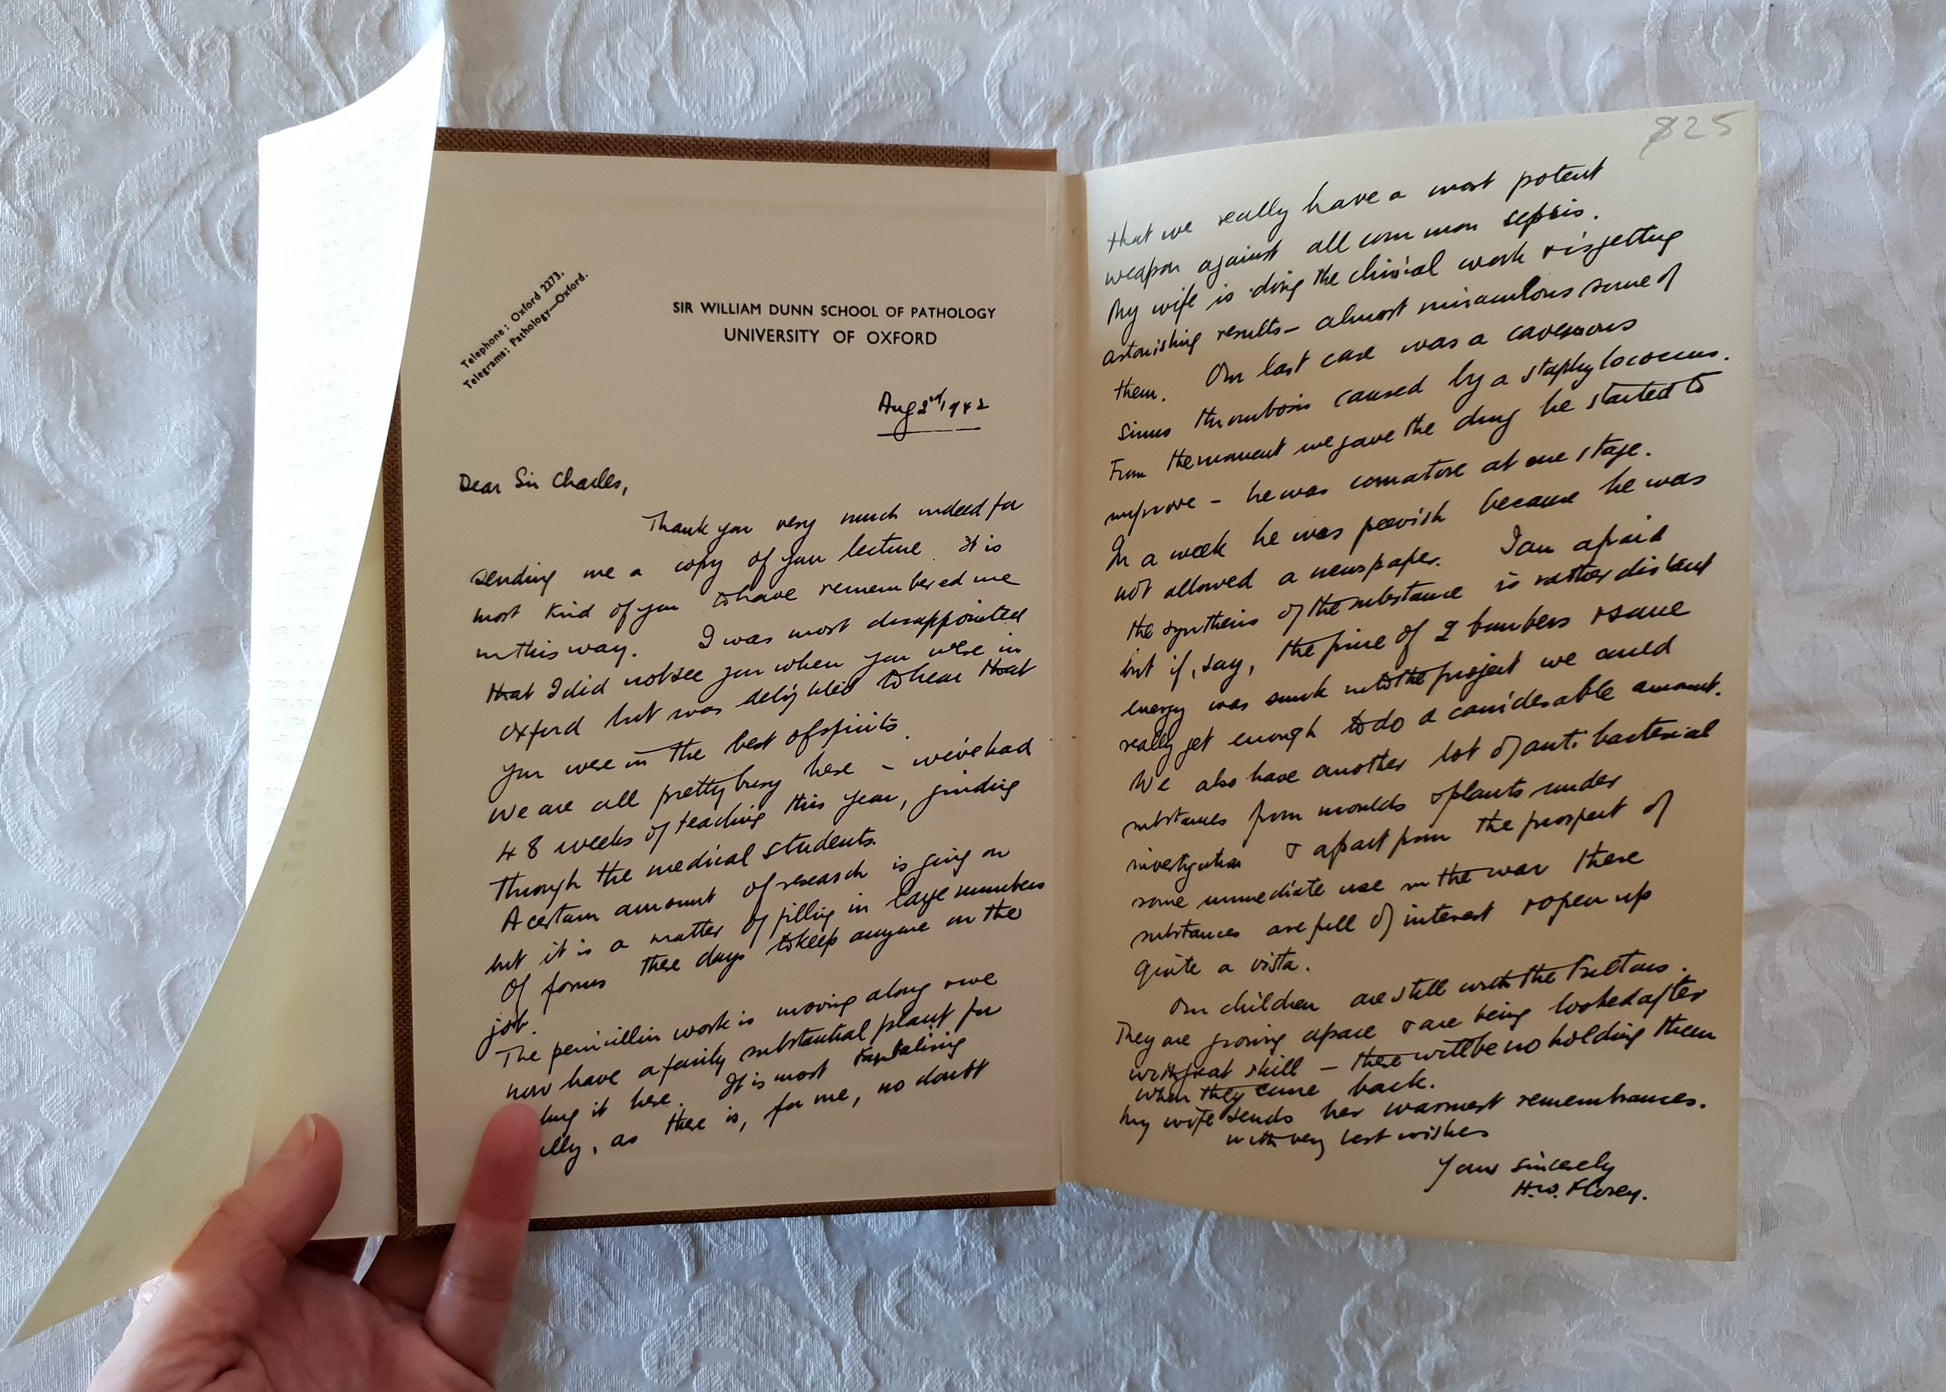 Telephone: Oxford 2273.
Telegrams: Pathology—Oxford.
SIR WILLIAM DUNN SCHOOL OF PATHOLOGY
UNIVERSITY OF OXFORD
Aug 2nd, 1942
Dear Sir Charles,
Thank you very much indeed for
sending me a copy of your lecture. It is
most kind of you to have remembered me
in this way. I was most disappointed
that I did not see you when you were in
Oxford but was delighted to hear that
you were in the best of spirits.
We are all pretty busy here – we've had
48 weeks of teaching this year, grinding
through the medical students.
A certain amount of research is going on
but it is a matter of filling in large numbers
of forms these days to keep anyone on the
job.
The penicillin work is moving along & we
now have a fairly substantial plant for
it here. It is most tantalising
, as there is, for me, no doubt
825
that we really have a most potent
weapon against all common sepsis.
My wife is doing the clinical work & is getting
astonishing results – almost miraculous some of
them. Our last case was a cavernous
sinus thrombosis caused by a staphylococcus.
From the moment we gave the drug he started to
improve – he was comatose at one stage.
In a week he was peevish because he was
not allowed a newspaper. I am afraid
the synthesis of the substance is rather distant
but if, say, the price of 2 bombers & some
energy was sunk into the project we could
really get enough to do a considerable amount.
We also have another lot of anti bacterial
substances from moulds & plants under
investigation & apart from the prospect of
some immediate use in the war these
substances are full of interest & open up
quite a vista.
Our children are still with the Fultons.
They are growing apace & are being looked after
with great skill – there will be no holding them
when they come back.
My wife sends her warmest remembrances.
with very best wishes
Yours sincerely
H.W. Florey.